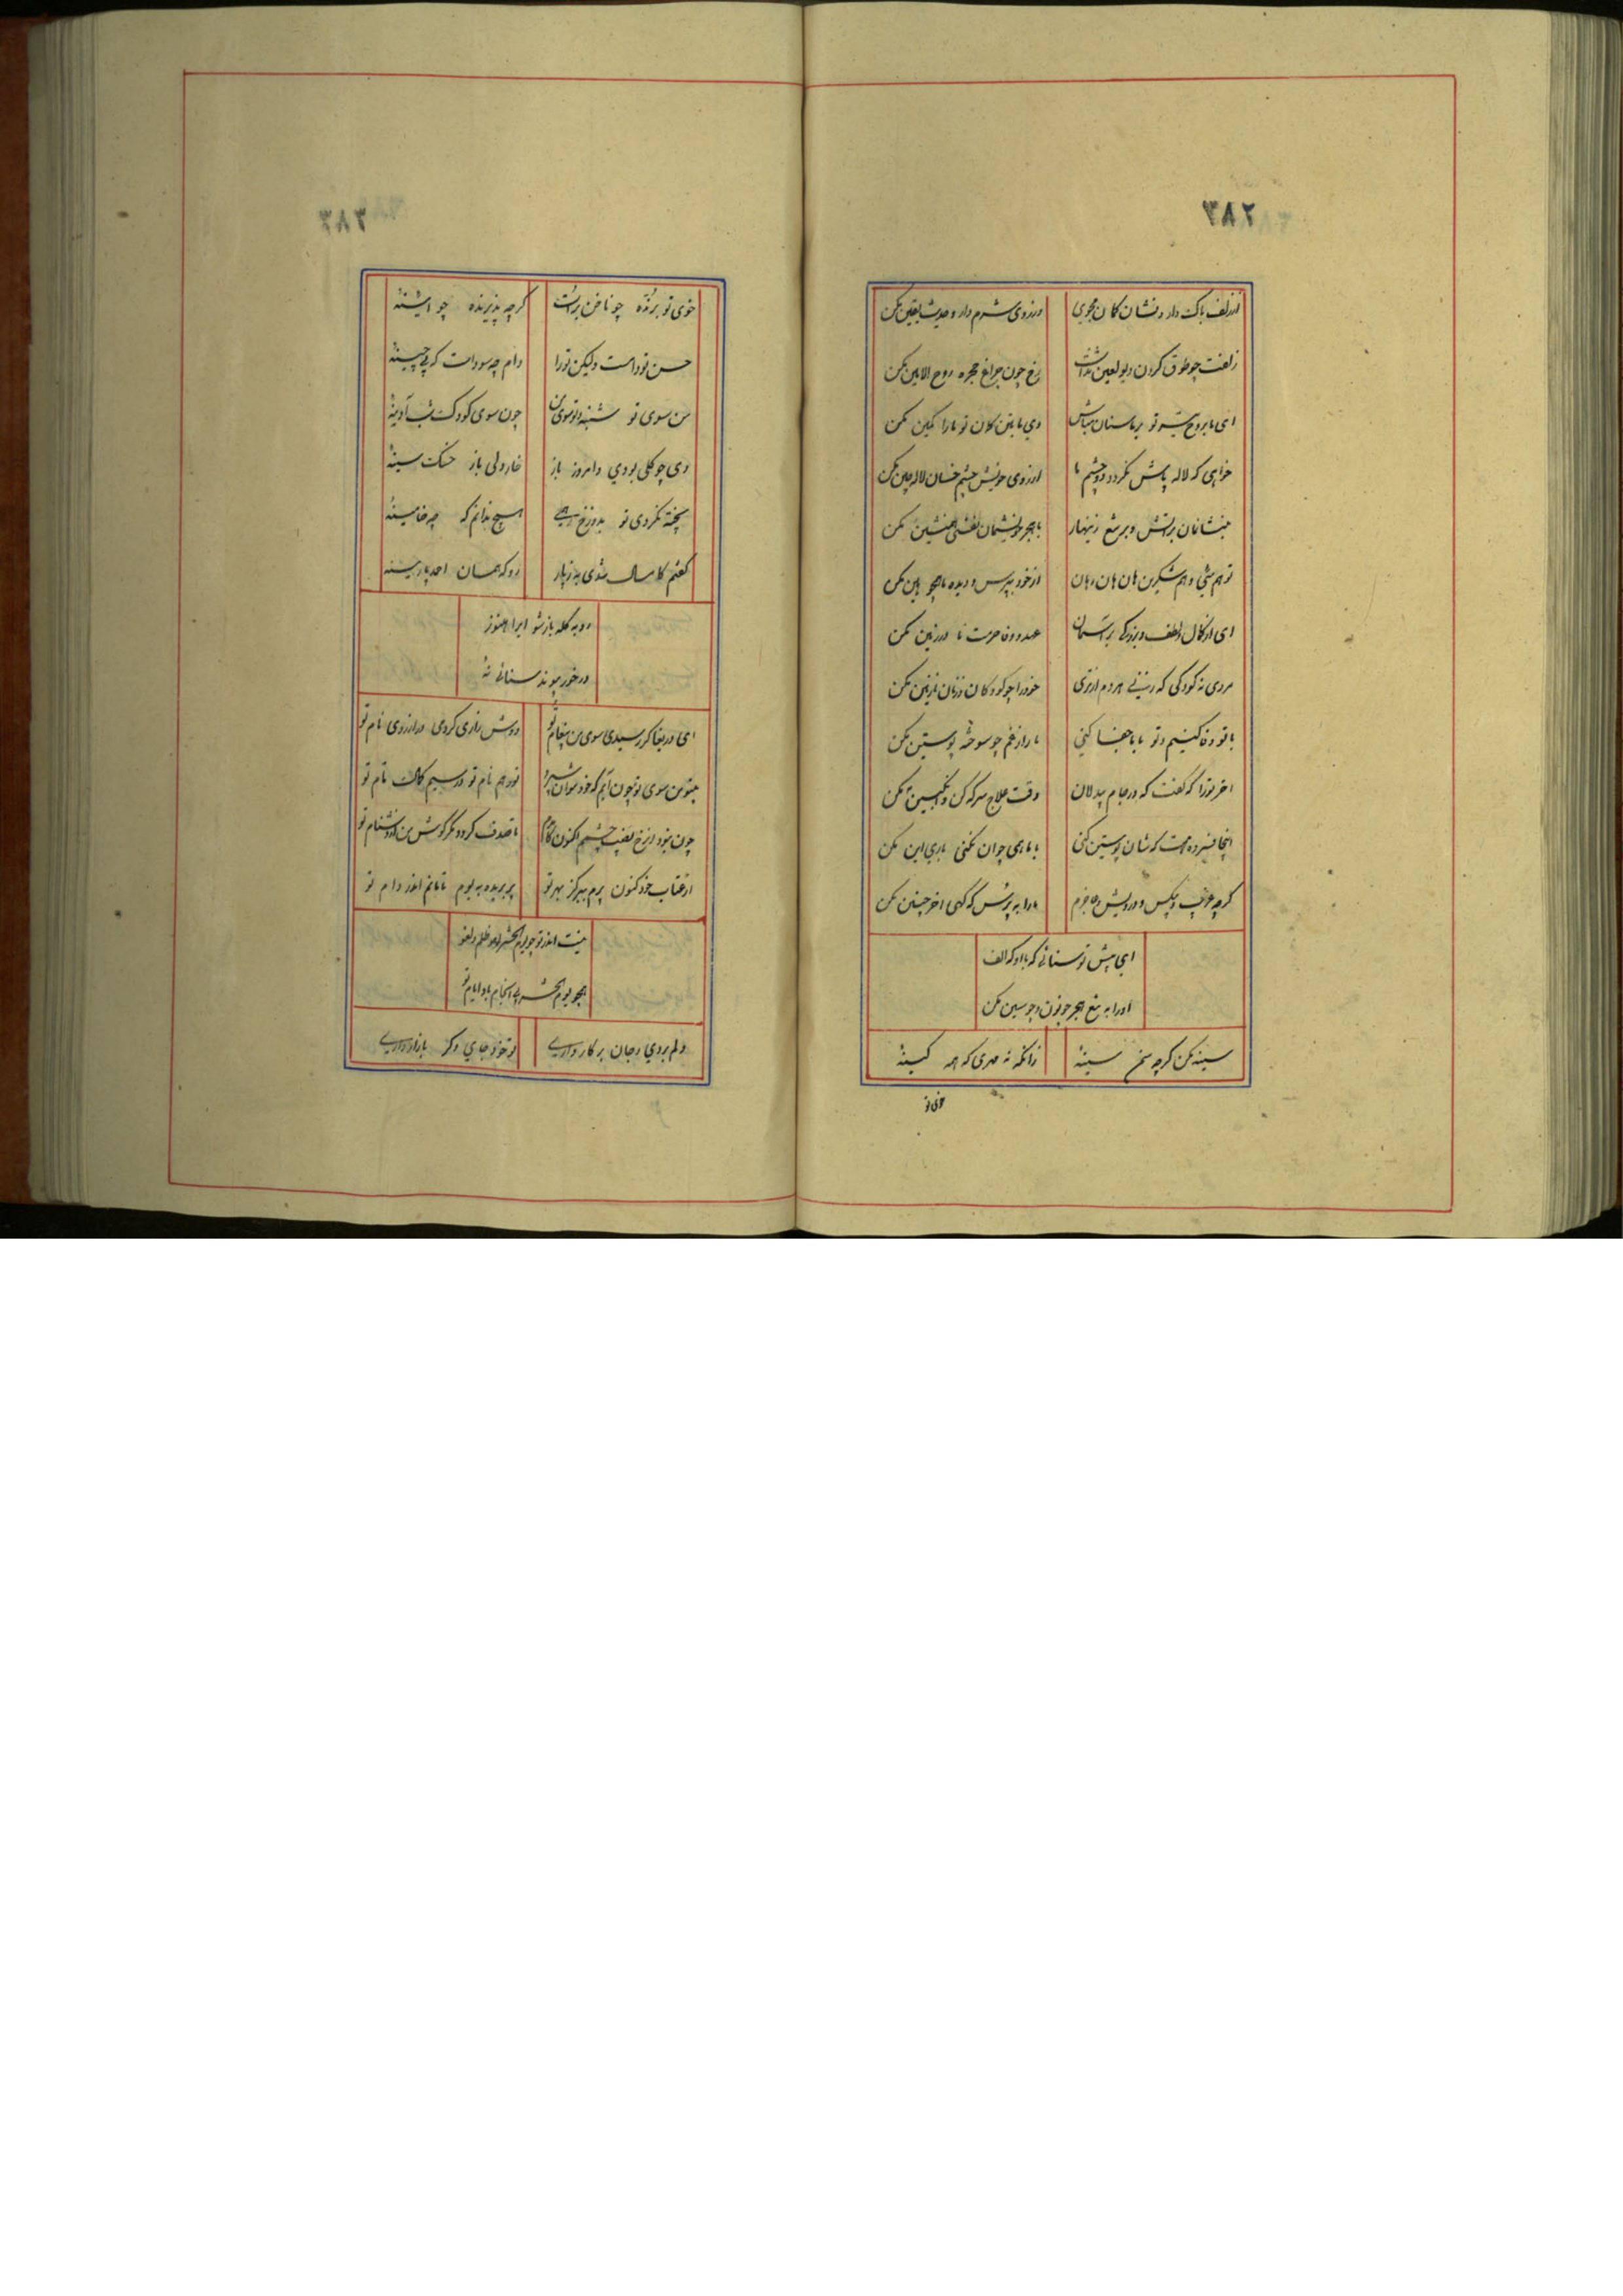 ۳۸۲
از زلف باک دار و نشان کان مجوی
وز روی شرم دار و حدیث یقین مکن
زلفت چو طوق گردن دیو لعین نداشت
رخ چون چراغ حجره روح الامین مکن
ای ما بروح تیر تو بر ما سنان مباش
وی ما بتن کمان تو ما را کمین مکن
خواهی که لاله پاش نگردد دو چشم ما
از روی خویش چشم خسان لاله چین مکن
بنشان بر آتش و بر تیغ زینهار
با هجر نفسی همنشین مکن
تو هم شهی و هم شکرین هان و هان و هان
از خود بپرس و دیده ما چو بین مکن
ای از کمال لطف و بزرگی بر آسمان
عهد و وفا و حرمت ما در زمین مکن
مردی نه کودکی که زنی هر دم از تری
خود را چو کودکان و زنان نازنین مکن
با تو وفا کنیم و تو با ما جفا کنی
ما را ز غم چو سوخته پوستین مکن
اخر ترا که گفت که در جام بیدلان
وقت علاج سرکه کن و انگبین مکن
انجا فسرده هست که شان پوستین کنی
با ما همی چو آن نکنی باری این مکن
گرچه غریب و بیکس و درویش و عاجزم
ما را به پرسش که گهی اخر چنین مکن
ای پیش تو سنائی که با او که الف
او را به تیغ هجر چو نون و چو سین مکن
سینه مکن گرچه سمن سینهٔ
زانکه نه مهری که همه کینهٔ
خوی تو
۳۸۳
خوی تو برنده چو ناخن براست
گرچه پذیرنده چو آئینهٔ
حسن تو دامست ولیکن تو را
دام چه سودست که بی چینهٔ
من سوی تو شنبه و تو سوی من
چون سوی کودک شب آدینهٔ
دی چو گلی بودی و امروز باز
خار دلی باز خسک سینهٔ
پخته نگردی تو بدوزخ همی
هیچ ندانم که چه خامینهٔ
گفتم کامسال شدی به ز پار
رو که همان احمد پارینهٔ
رو به گله باز شو ایرا هنوز
در خور پیوند سنائی نهٔ
ای دریغا گر رسیدی سوی من پیغام تو
دوش زاری کردمی در ارزوی نام تو
بیتو من سوی تو چون آیم که خود
خود هم نام تو
چون نبود از رخ نصیب چشم اکنون
تا صدف گردد مگر گوش من از دشنام تو
از عتاب خود کنون پرم ببر کز بهر تو
پر بریده به بوم تا مانم اندر دام تو
نیست اندر تو چو یوم الحشر ظلم و لغو
همچو یوم الحشر بی انجام باد ایام تو
دلم بردی و جان بر کار داری
تو خود جای دگر بازار داری